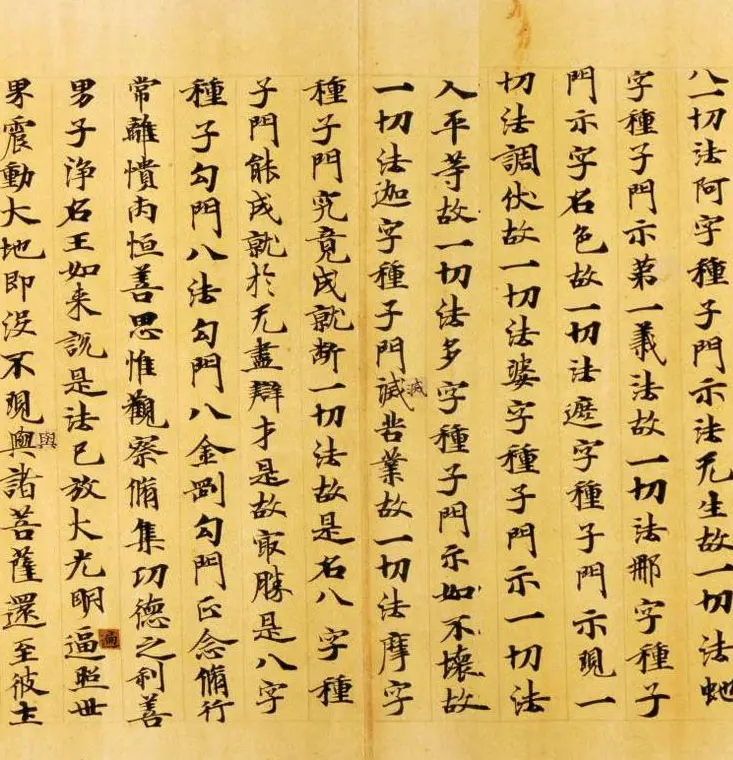 一切法阿字種子門示法无生故一切法虵
字種子門示苐一義法故一切法那字種子
門示字名色故一切法遮字種子門示現一
切法調伏故一切法婆字種子門示一切法
入平等故一切法多字種子門示如不壞故
一切法迦字種子門滅苦業故一切法摩字
滅
種子門究竟成就斷一切法故是名八字種
子門能成就於无盡辯才是故㝡勝是八字
種子勾門八法勾門八金剛勾門正念脩行
常離憒丙恒善思惟觀察脩集功德之利善
男子淨名王如来說是法已放大光明逼照世
遍
界震動大地即没不現與諸菩薩還至彼土
與